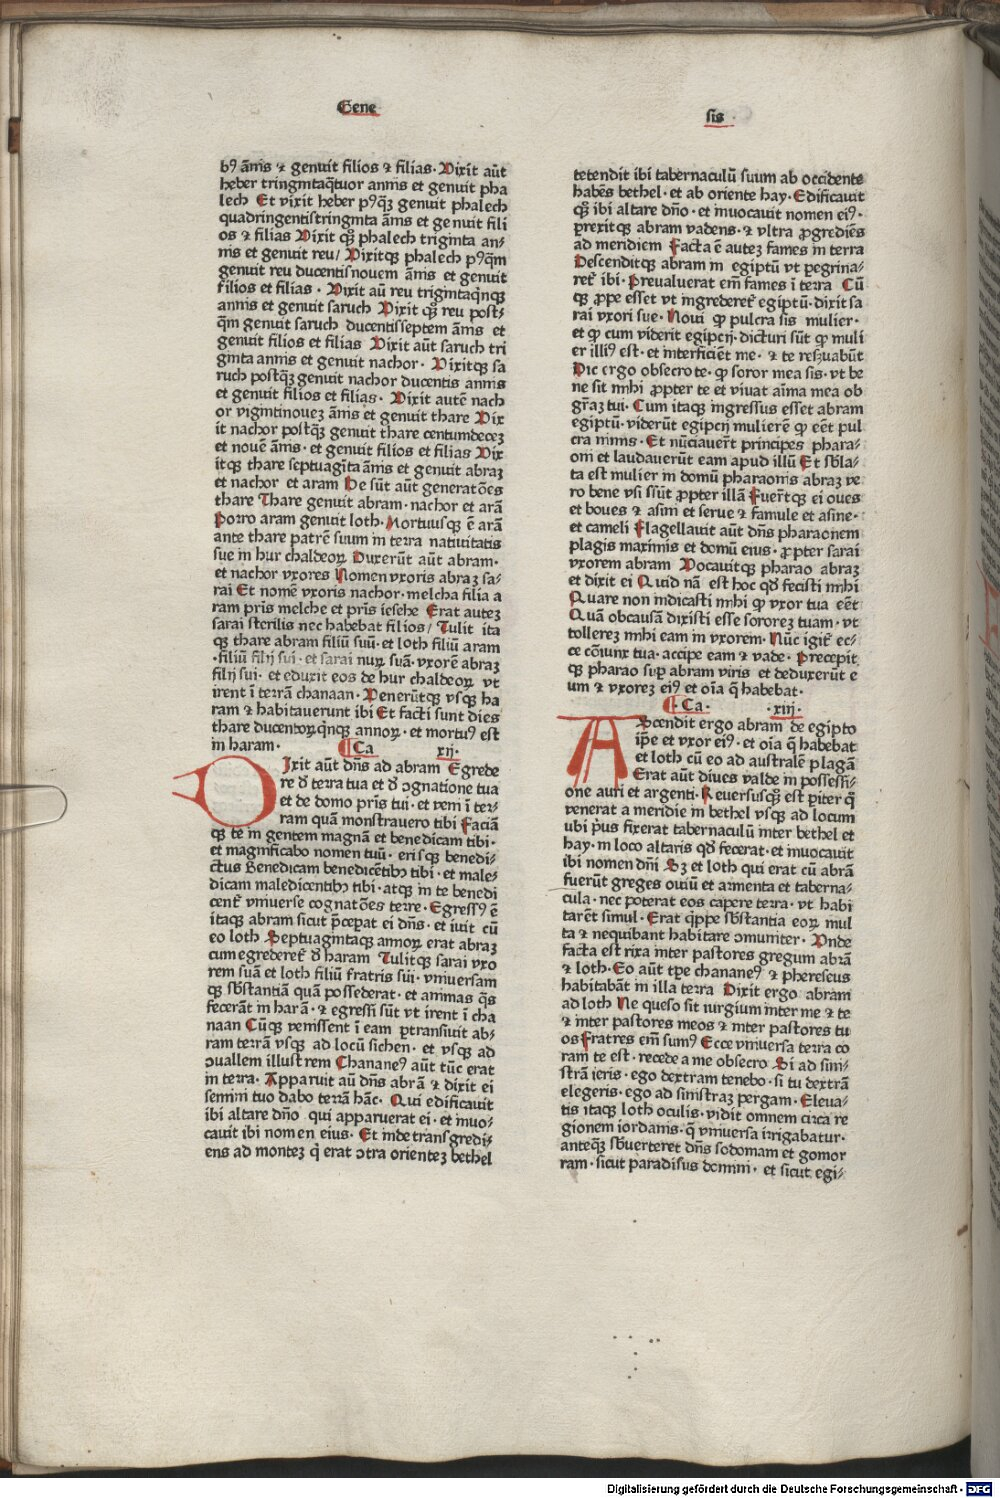 Gene
sis
bꝰ ānis ⁊ genuit filios ⁊ filias· Vixit aūt
heber trigintaq̄tuor annis et genuit pha
lech Et vixit heber pꝰqꝫ genuit phalech
quadringentistriginta āms et genuit fili
os ⁊ filias Vixit qꝫ phalech triginta an⸗
nis et genuit reu/ Vixitqꝫ phalech pꝰqm̄
genuit reu ducentisnouem āmis et genuit
filios et filias · Vixit aū reu trigintaqnqꝫ
annis et genuit saruch Vixit qꝫ reu post⸗
qm̄ genuit saruch ducentisseptem āms et
genuit filios et filias Vixit aūt saruch tri
ginta annis et genuit nachor · Vixitqꝫ sa
ruch postqꝫ genuit nachor ducentis annis
et genuit filios et filias · Vixit autē nach
or vigintinoueꝫ āms et genuit thare Vix
it nachor postqꝫ genuit thare centumdeceꝫ
et nouē āms· et genuit filios et filias Vix
itqꝫ thare septuagīta āms et genuit abraꝫ
et nachor et aram He sūt aūt generatōes
thare Thare genuit abram· nachor et arā
Porro aram genuit loth· Mortuusqꝫ ē arā
ante thare patrē suum in terra natiuitatis
sue in hur chaldeoꝝ Duxerūt aūt abram·
et nachor vxores Nomen vxoris abraꝫ sa⸗
rai Et nomē vxoris nachor· melcha filia a
ram pris melche et pris iesche Erat auteꝫ
sarai sterilis nec habebat filios/ Tulit ita
qꝫ thare abram filiū suū· et loth filiū aram
·filiū filij sui · et sarai nuꝝ suā· vxorē abraꝫ
filij sui· et eduxit eos de hur chaldeoꝝ vt
irent ī terrā chanaan· Venerūtqꝫ vsqꝫ ha
ram ⁊ habitauerunt ibi Et facti sunt dies
thare ducentoꝝqnqꝫ annoꝝ· et mortuꝰ est
in haram·
Ca xij·
DIxit aūt dn̄s ad abram Egrede
re đ terra tua et đ ɔgnatione tua
et de domo pr̄is tui· et veni ī ter⸗
ram quā monstrauero tibi Faciā
qꝫ te in gentem magnā et benedicam tibi·
et magnificabo nomen tuū· erisqꝫ benedi⸗
ctus Benedicam benedicētibꝰ tibi· et male⸗
dicam maledicentibꝰ tibi · atqꝫ in te benedi
cent̄ vniuerse cognatōes terre· Egressꝰ ē
itaqꝫ abram sicut p̄ceperat ei dn̄s· et iuit cū
eo loth Septuagintaqꝫ annoꝝ erat abraꝫ
cum egrederet̄ đ haram Tulitqꝫ sarai vxo
rem suā et loth filiū fratris sui· vniuersam
qꝫ sb̄stantiā quā possederat· et animas q̄s
fecerāt in harā· ⁊ egressi sūt vt irent ī cha
naan Cūqꝫ venissent ī eam ꝑtransiuit ab⸗
ram terrā vsqꝫ ad locū sichen· et vsqꝫ ad
ɔuallem illustrem Chananeꝰ aūt tūc erat
in terra· Apparuit aū dn̄s abrā ⁊ dixit ei
semini tuo dabo terrā hāc· Qui edificauit
ibi altare dn̄o qui apparuerat ei· et inuo⸗
cauit ibi nomen eius· Et inde transgredi⸗
ens ad monteꝫ q̄ erat ɔtra orienteꝫ bethel
tetendit ibi tabernaculū suum ab occidente
habēs bethel· et ab oriente hay· Edificauit
qꝫ ibi altare dn̄o· et inuocauit nomen eiꝰ·
ꝑrexitqꝫ abram vadens· ⁊ vltra ꝓgrediēs
ad meridiem Facta ē auteꝫ fames in terra
Descenditqꝫ abram in egiptū vt ꝑegrina⸗
ret̄ ibi· Preualuerat em̄ fames ī terra Cū
qꝫ ꝓpe esset vt ingrederet̄ egiptū· dixit sa
rai vxori sue· Noui ꝙ pulcra sis mulier·
et ꝙ cum viderit egipcij· dicturi sūt ꝙ muli
er illiꝰ est· et interficiēt me· ⁊ te reẜuabūt
Dic ergo obsecro te· ꝙ soror mea sis· vt be
ne sit mihi ꝓpter te et viuat aīma mea ob
gr̄aꝫ tui· Cum itaqꝫ ingressus esset abram
egiptū· viderūt egipcij mulierē ꝙ eēt pul
cra nimis· Et nūciauer̄t principes phara⸗
oni et laudauerūt eam apud illū Et sb̄la⸗
ta est mulier in domū pharaonis abraꝫ ve
ro bene vsi sūt ꝓpter illā Fuer̄tqꝫ ei oues
et boues ⁊ asini et serue ⁊ famule et asine·
et cameli Flagellauit aūt dn̄s pharaonem
plagis maximis et domū eius· ꝓpter sarai
vxorem abram Vocauitqꝫ pharao abraꝫ
et dixit ei Quid nā est hoc qđ fecisti mihi
Quare non indicasti mihi ꝙ vxor tua eēt
Quā obcausā dixisti esse sororeꝫ tuam· vt
tollereꝫ mihi eam in vxorem· Nūc igit̄ ec⸗
ce cōiunx tua· accipe eam ⁊ vade· Precepit
qꝫ pharao suꝑ abram viris et deduxerūt e
um ⁊ vxoreꝫ eiꝰ et oīa q̄ habebat·
Ca· xiij·
AScendit ergo abram de egipto
ip̄e et vxor eiꝰ· et oīa q̄ habebat
et loth cū eo ad australē plagā
Erat aūt diues valde in possessi⸗
one auri et argenti· Reuersusqꝫ est ꝑ iter q̄
venerat a meridie in bethel vsqꝫ ad locum
vbi p̄us fixerat tabernaculū inter bethel et
hay· in loco altaris qđ fecerat· et inuocauit
ibi nomen dn̄i Sꝫ et loth qui erat cū abrā
fuerūt greges ouiū et armenta et taberna⸗
cula· nec poterat eos capere terra· vt habi
tarēt simul· Erat q̄ppe sb̄stantia eoꝝ mul
ta ⁊ nequibant habitare ɔmuniter· Vnde
facta est rixa inter pastores gregum abrā
⁊ loth· Eo aūt tꝑe chananeꝰ ⁊ phereseus
habitabāt in illa terra Dixit ergo abram
ad loth Ne queso sit iurgium inter me ⁊ te
⁊ inter pastores meos ⁊ inter pastores tu
os Fratres em̄ sumꝰ Ecce vniuersa terra co
ram te est· recede a me obsecro Si ad sini⸗
strā ieris· ego dextram tenebo· si tu dextrā
elegeris· ego ad sinistraꝫ pergam· Eleua⸗
tis itaqꝫ loth oculis· vidit omnem circa re
gionem iordanis· q̄ vniuersa irrigabatur·
anteqꝫ sb̄uerteret dn̄s sodomam et gomor
ram· sicut paradisus domini· et sicut egi⸗
Digitalisierung gefördert durch die Deutsche Forschungsgemeinschaft · DFG